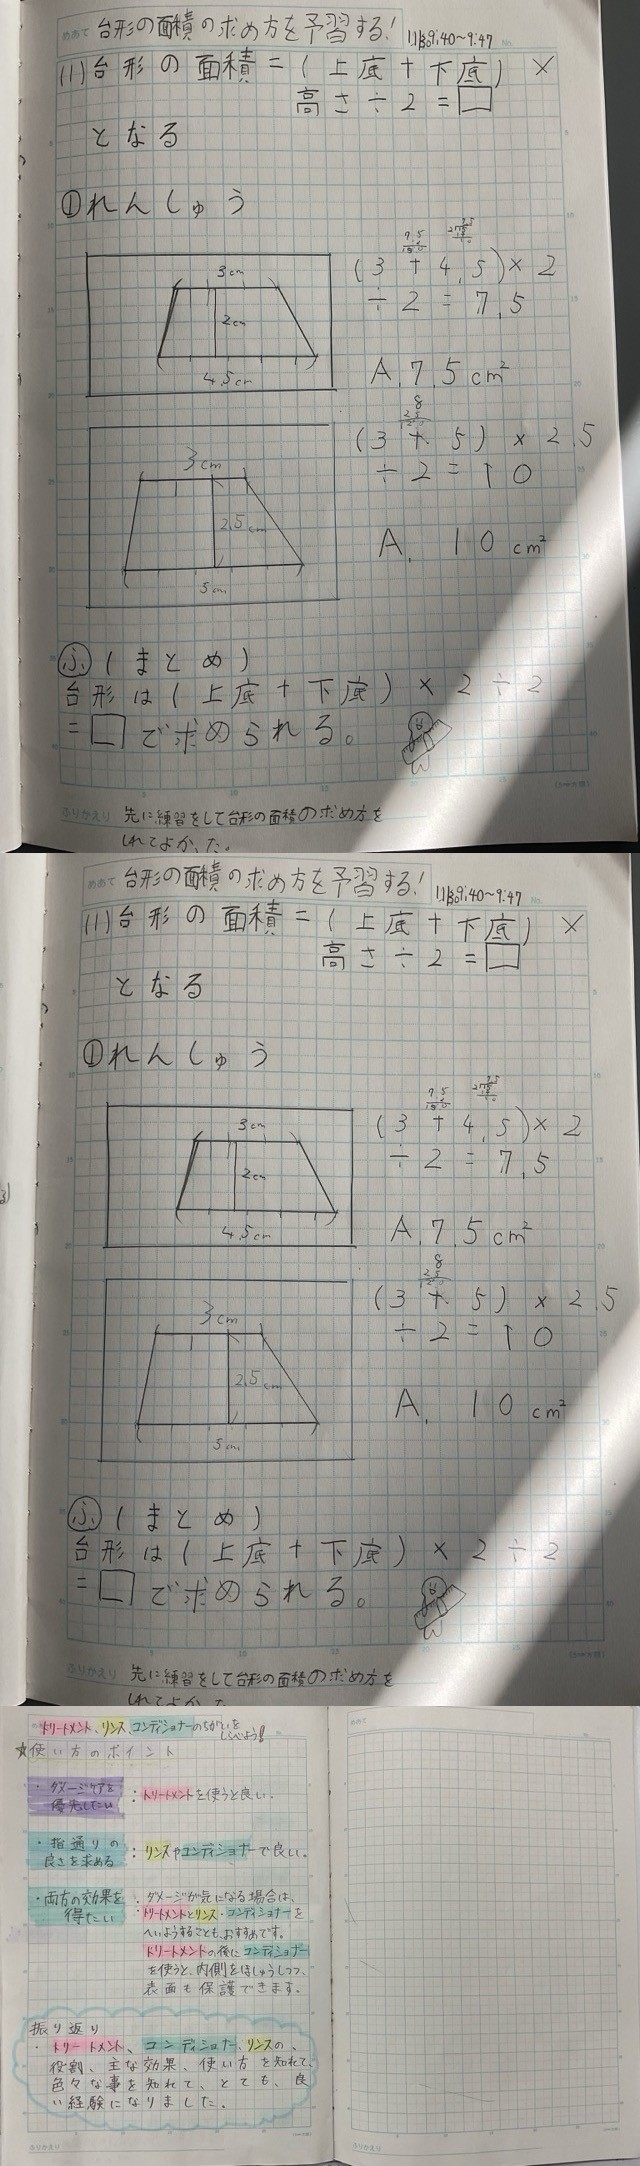 めあて 台形の面積の求め方を予習する! 9:40〜9:47
(1)台形の面積=(上底+下底)×
高さ÷2=□
となる
①れんしゅう
3cm
2cm
4.5cm
(3+4.5)×2
÷2=7.5
A.7.5cm²
3cm
2.5cm
5cm
8
(3+5)×2.5
÷2=10
A.10cm²
ふ(まとめ)
台形は(上底+下底)×2÷2
=□で求められる。
ふりかえり 先に練習をして台形の面積の求め方を
しれてよかった。
めあて 台形の面積の求め方を予習する! 9:40〜9:47
(1)台形の面積=(上底+下底)×
高さ÷2=□
となる
①れんしゅう
3cm
2cm
4.5cm
(3+4.5)×2
÷2=7.5
A.7.5cm²
3cm
2.5cm
5cm
8
(3+5)×2.5
÷2=10
A.10cm²
ふ(まとめ)
台形は(上底+下底)×2÷2
=□で求められる。
ふりかえり 先に練習をして台形の面積の求め方を
しれてよかった
トリートメント、リンス、コンディショナーのちがいを
しらべよう!
☆使い方のポイント
・ダメージケアを
優先したい
:トリートメントを使うと良い.
・指通りの
良さを求める
:リンスやコンディショナーで良い.
・両方の効果を
得たい
:ダメージが気になる場合は、
トリートメントとリンス・コンディショナーを
へいようすることも、おすすめです。
トリートメントの後にコンディショナー
を使うと、内側をほしゅうしつつ、
表面も保護できます.
振り返り
・トリートメント、コンディショナー、リンスの、
役割、主な効果、使い方を知れて、
色々な事を知れて、とても、良
い経験になりました.
ふりかえり
めあて
ふりかえり